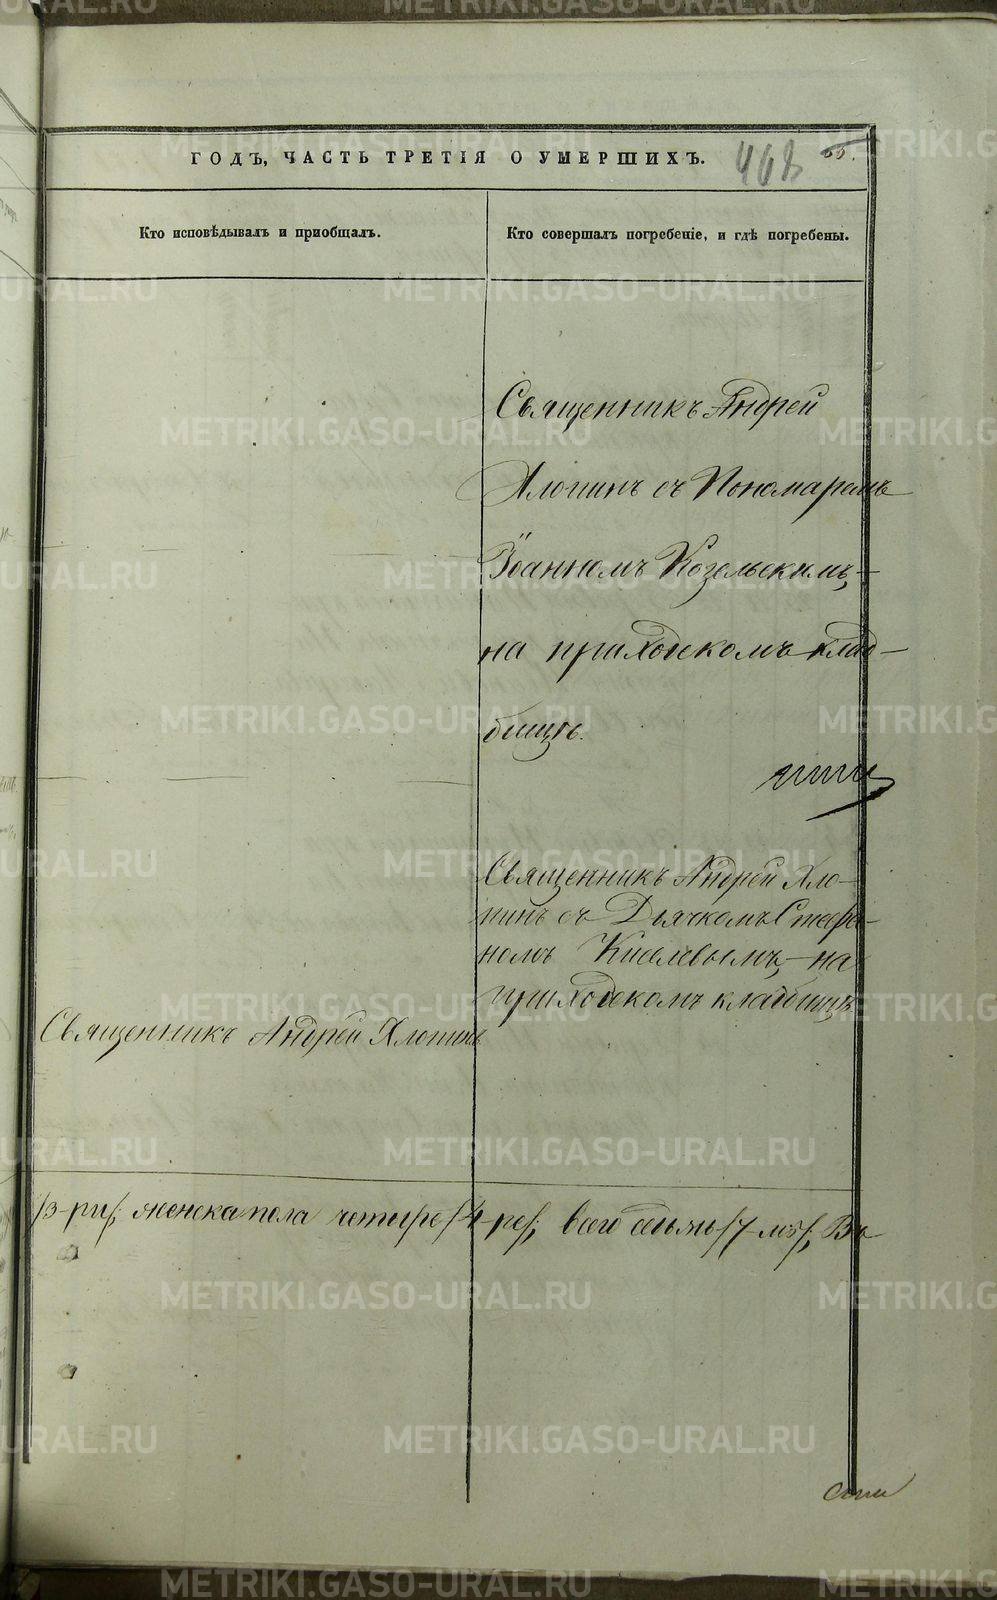 ГОДЪ, ЧАСТЬ ТРЕТІЯ О УМЕРШИХЪ.
468
Кто исповѣдывалъ и приобщалъ.
Кто совершалъ погребеніе, и гдѣ погребены.
Священникъ Андрей
Хлопинъ съ Пономаремъ
Іоанномъ Козельскимъ,
на приходскомъ клад-
бищѣ.
Священникъ Андрей Хло-
пинъ съ Дьячкомъ Стефа-
номъ Киселевымъ, на
приходскомъ кладбищѣ
Священникъ Андрей Хлопинъ
/3-ри/; женска пола четыре /4-ре/; всего седьмь /7-мь/; Въ
METRIKI.GASO-URAL.RU